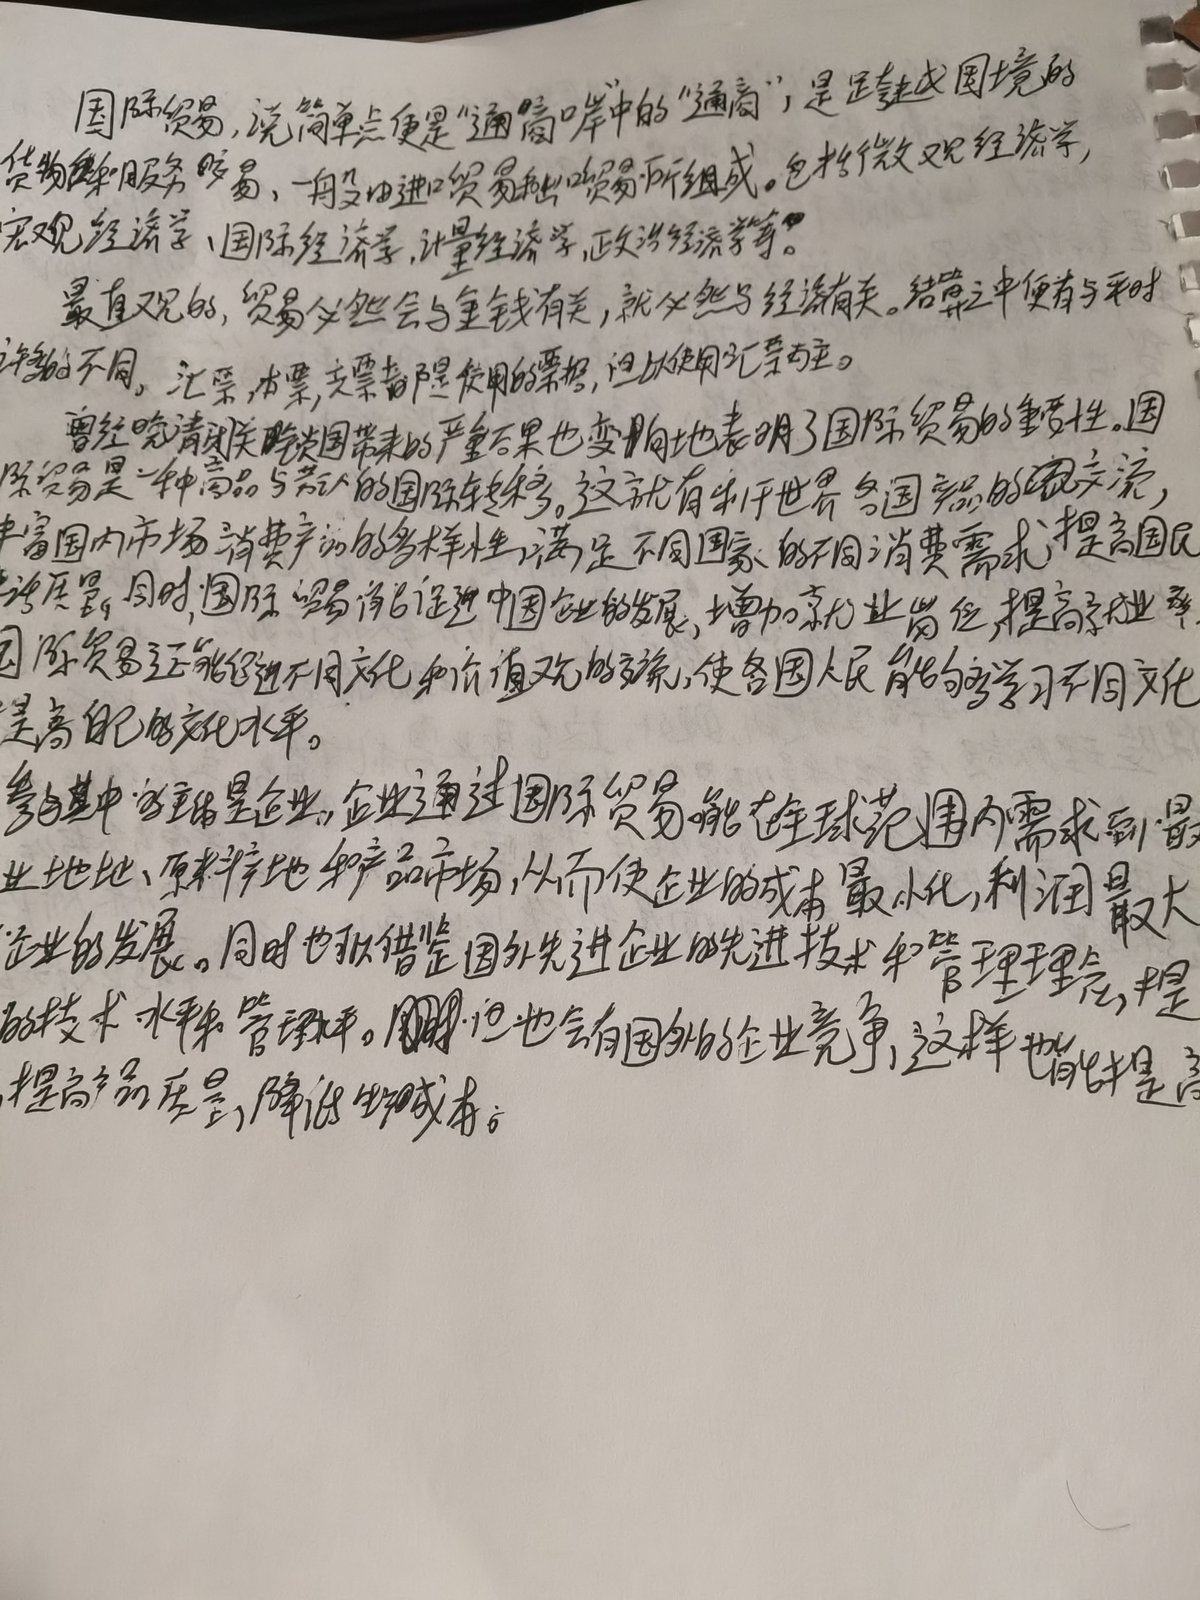 国际贸易,说简单点便是“通商口岸”中的“通商”,是跨越国境的
货物和服务贸易,一般由进口贸易和出口贸易所组成。包括微观经济学,
宏观经济学、国际经济学,计量经济学,政治经济学等。
最直观的,贸易必然会与金钱有关,就必然与经济有关。结算之中便有与平时
许多的不同。汇票,本票,支票都是使用的票据,但以使用汇票为主。
曾经晚清闭关锁国带来的严重后果也变相地表明了国际贸易的重要性。国
际贸易是一种商品与劳务的国际转移。这就有利于世界各国产品的交流,
丰富国内市场消费产品的多样性,满足不同国家的不同消费需求,提高国民
活质量。同时,国际贸易能促进中国企业的发展,增加就业岗位,提高就业率。
国际贸易还能促进不同文化和价值观的交流,使各国人民能够学习不同文化
提高自己的文化水平。
参与其中的主体是企业。企业通过国际贸易能在全球范围内需求到最
业地地、原料产地和产品市场,从而使企业的成本最小化,利润最大
企业的发展。同时也可以借鉴国外先进企业的先进技术和管理理念,提
的技术水平和管理水平。但也会有国外的企业竞争,这样也能提高
,提高产品质量,降低生产成本。